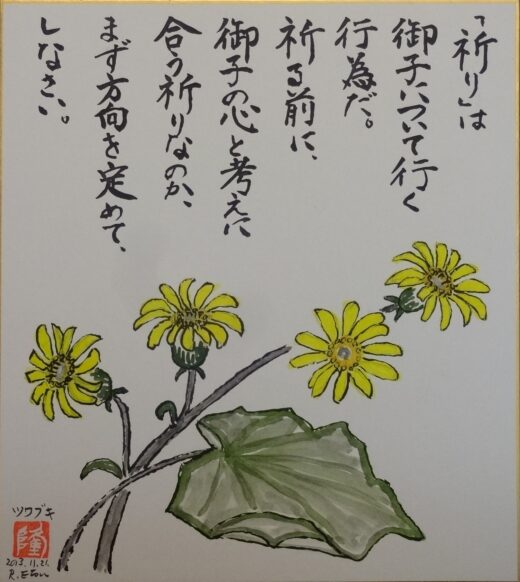 「祈り」は
御子について行く
行為だ。
祈る前に、
御子の心と考えに
合う祈りなのか、
まず方向を定めて、
しなさい。
ツワブキ
隆
2013.11.21.